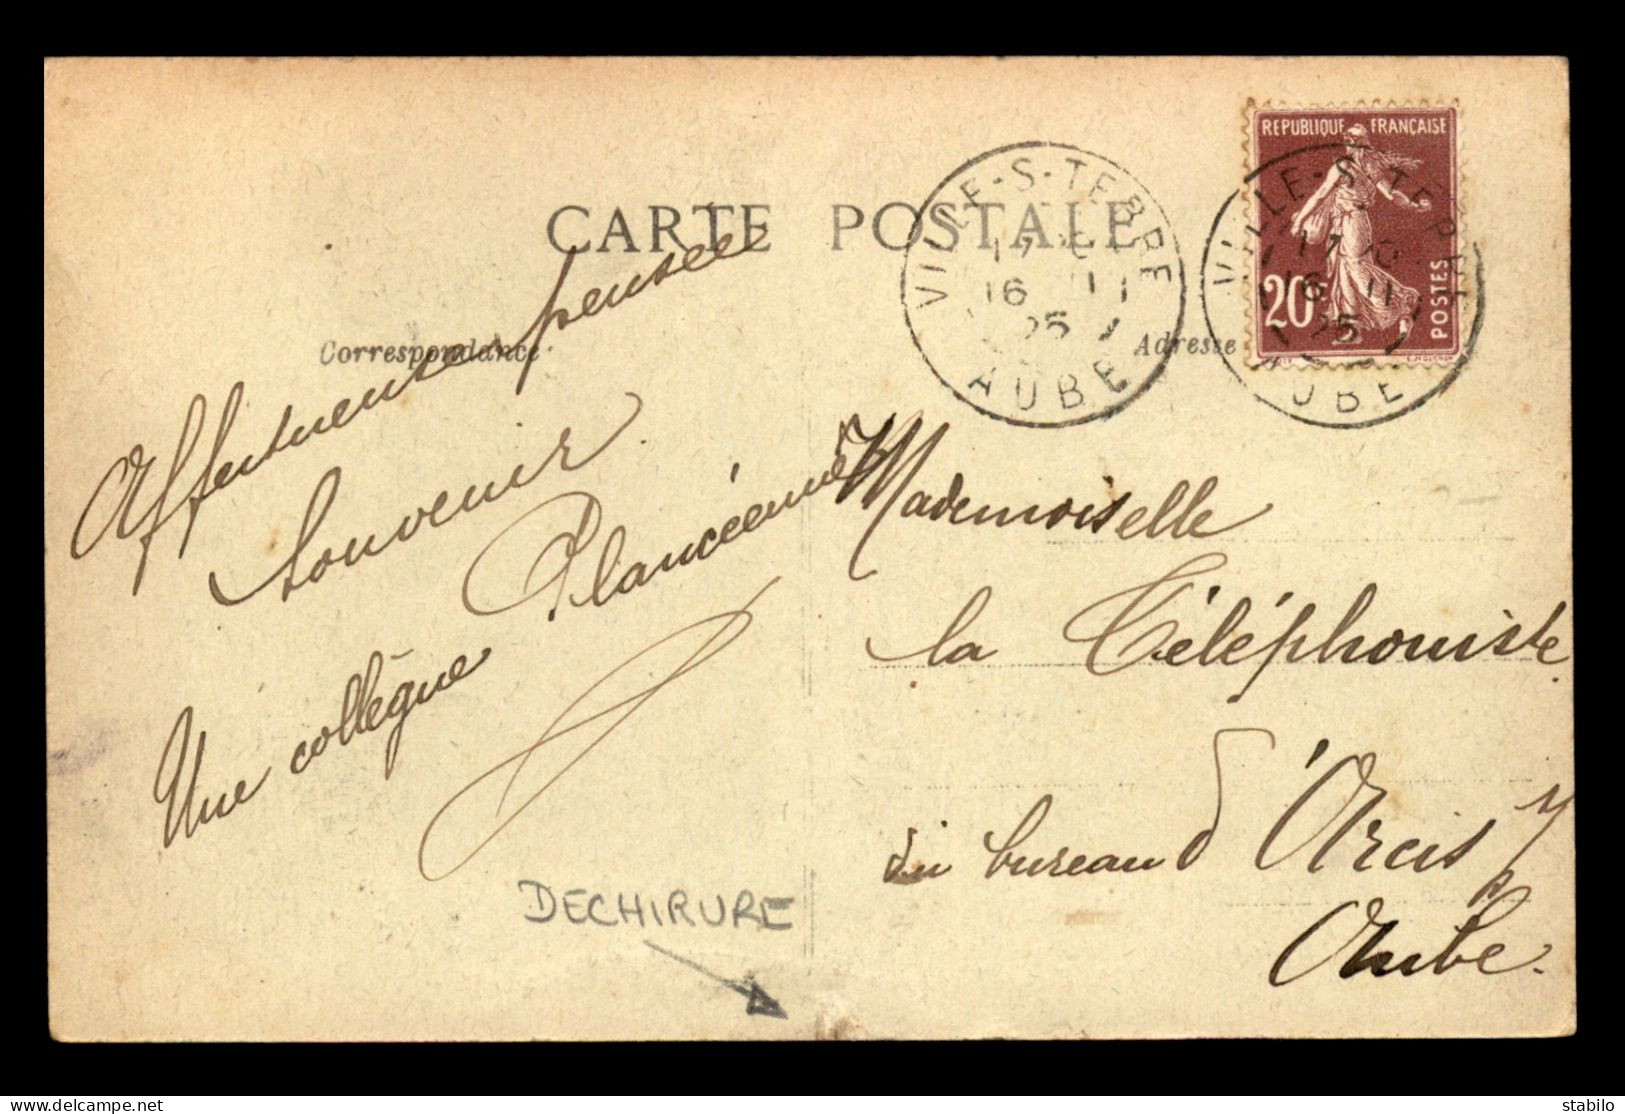 CARTE POSTALE
Correspondance
Adresse
REPUBLIQUE FRANÇAISE
20c
POSTES
VILLE-S-TERRE
16 11
25
AUBE
VILLE-S-TERRE
17
16 11
25
AUBE
Affectueuse pensée
Souvenir
Une collègue Plancéenne
Mademoiselle
la Téléphoniste
du bureau d'Arcis s/
Aube.
DECHIRURE
stabilo